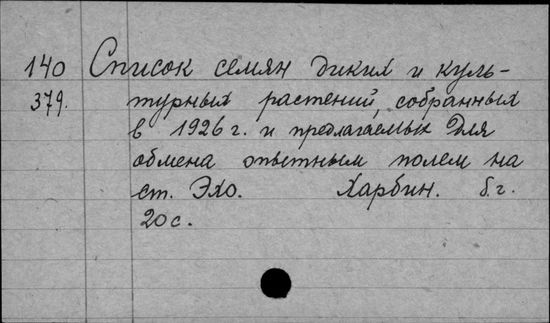 140 Список семян диких и куль-
379. турных растений, собранных
в 1926 г. и предлагаемых для
обмена опытным полем на
ст. Эхо. Харбин. б.г.
20 с.